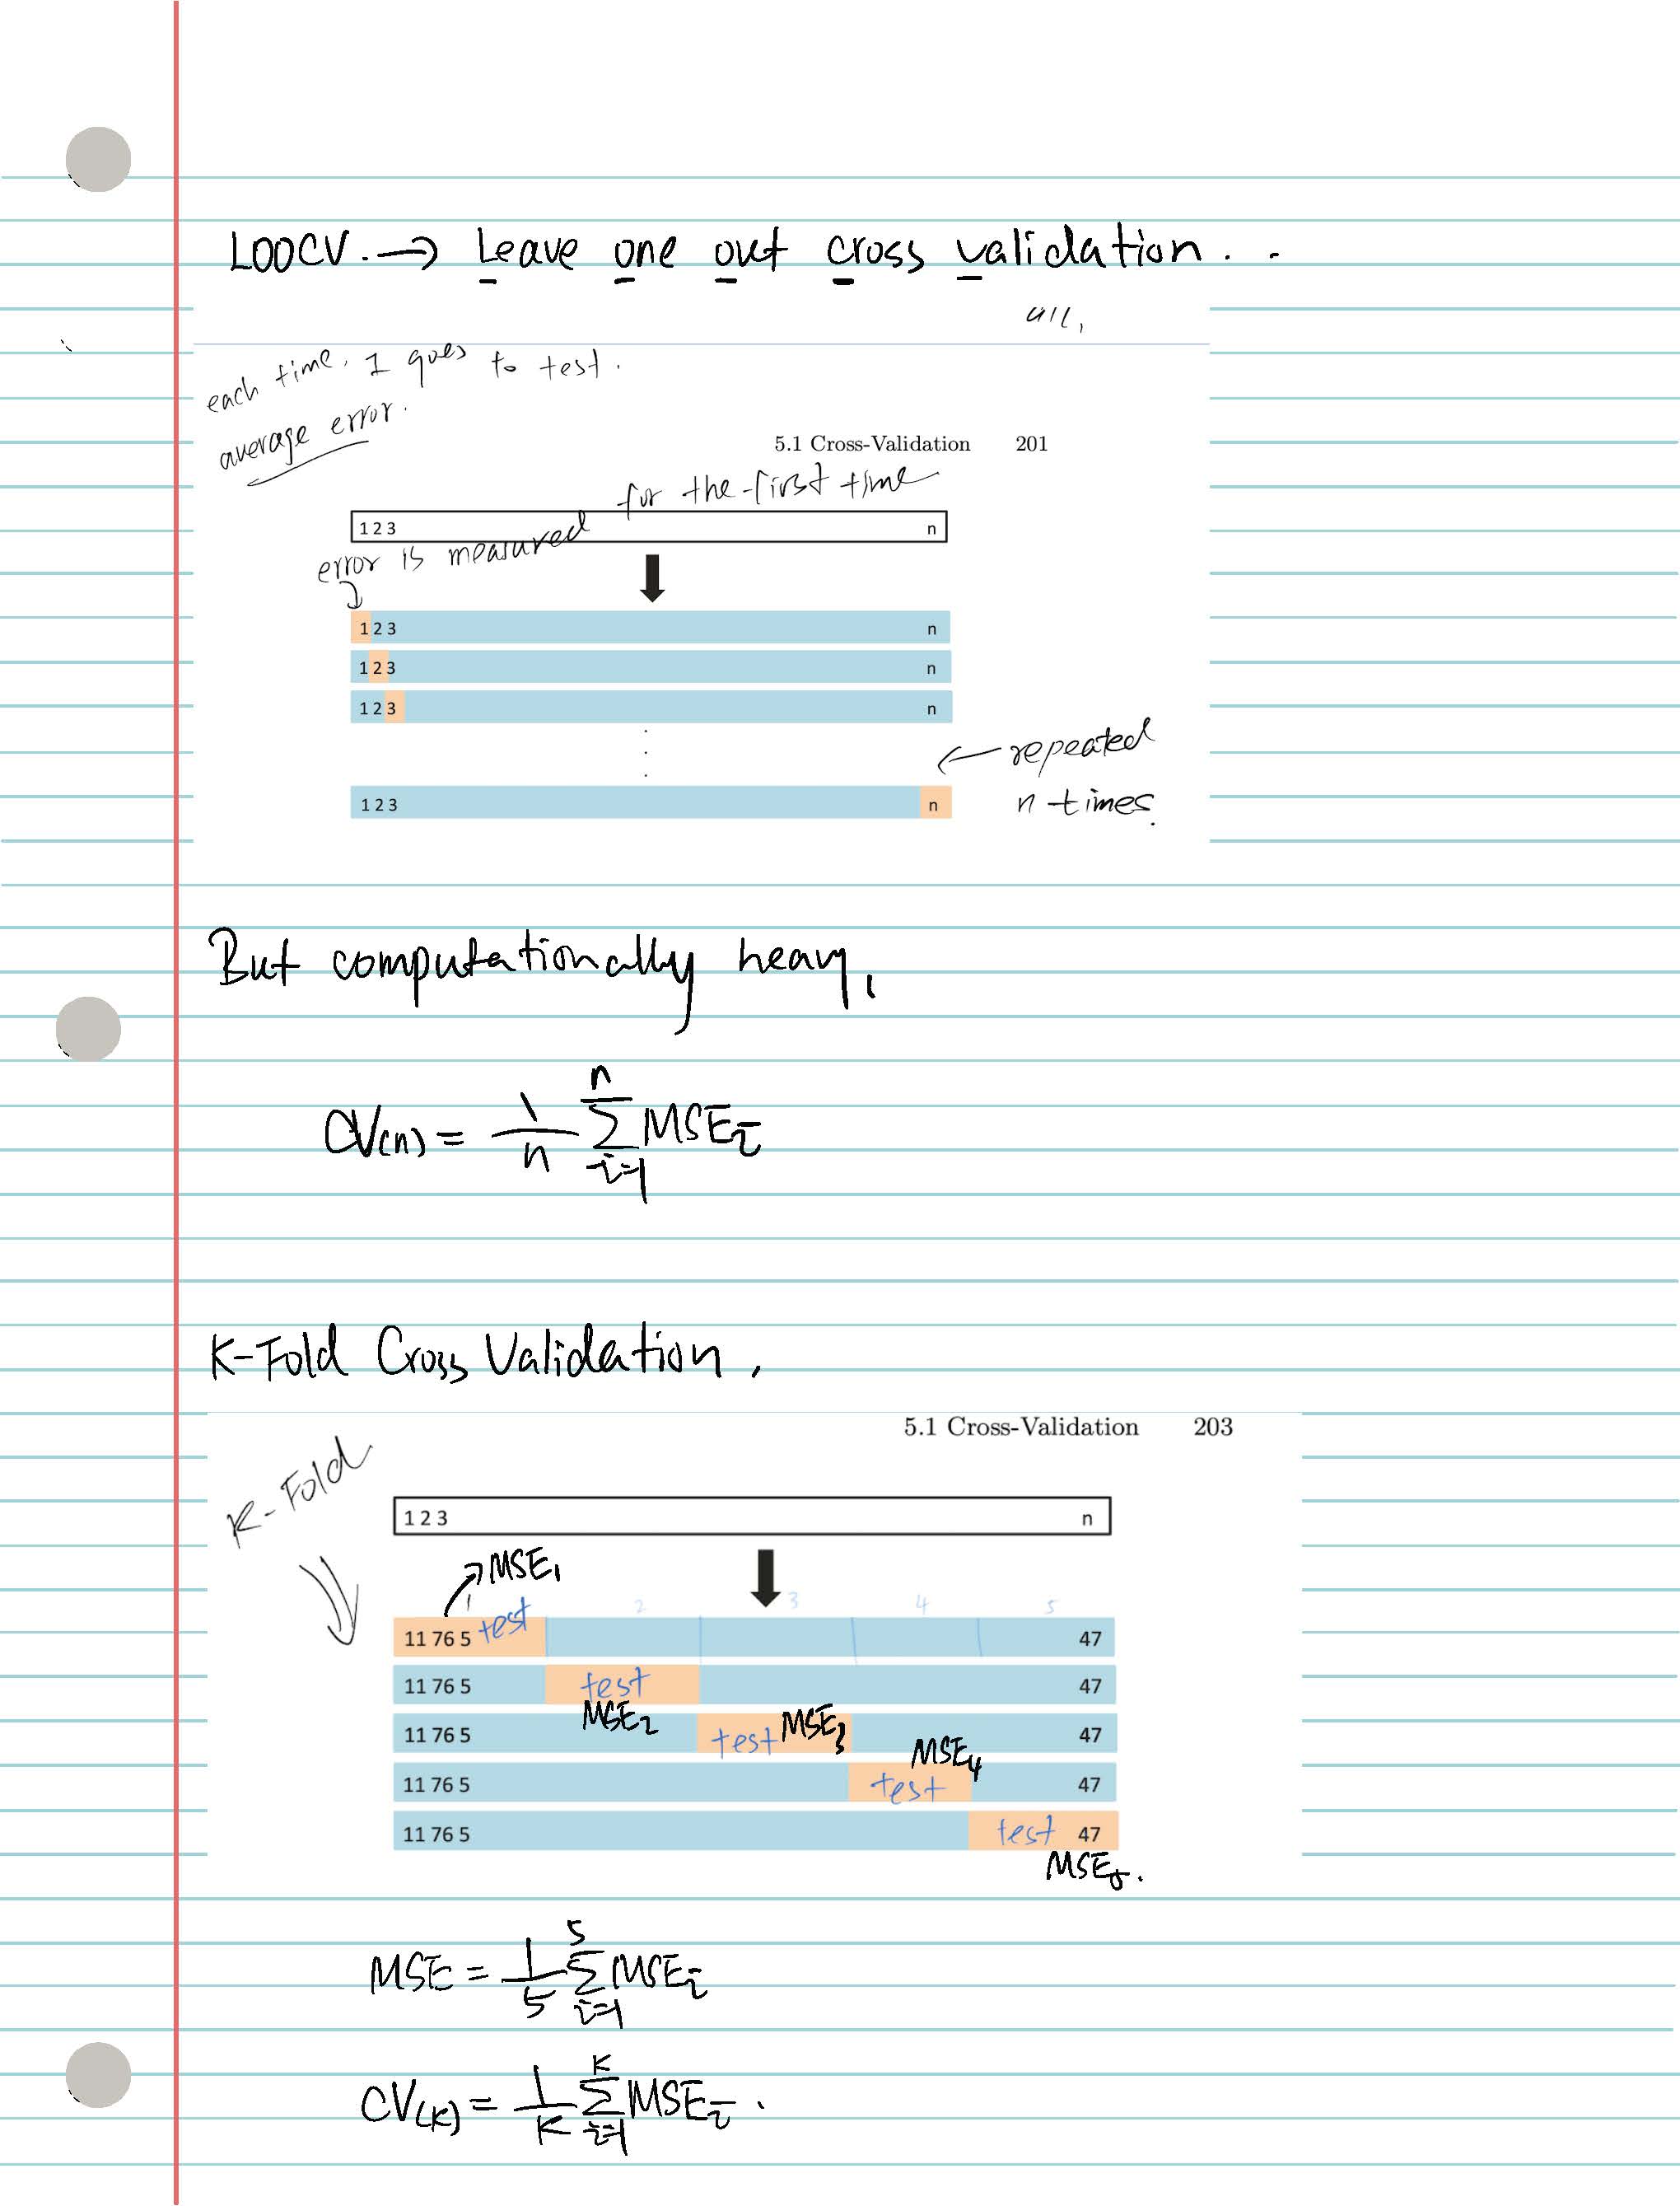 LOOCV. → Leave one out cross validation. .
all,
each time, 1 goes to test.
average error.
5.1 Cross-Validation 201
for the first time
1 2 3 n
error is measured
1 2 3 n
1 2 3 n
1 2 3 n
← repeated
n times.
1 2 3 n
But computationally heavy,
CV(n) = 1/n Σ_{i=1}^{n} MSE_i
K-Fold Cross Validation,
5.1 Cross-Validation 203
K-Fold
1 2 3 n
MSE₁
1 2 3 4 5
11 76 5 test 47
11 76 5 test 47
MSE₂
11 76 5 test MSE₃ 47
MSE₄
11 76 5 test 47
11 76 5 test 47
MSE₅.
MSE = 1/5 Σ_{i=1}^{5} MSE_i
CV(K) = 1/K Σ_{i=1}^{K} MSE_i .